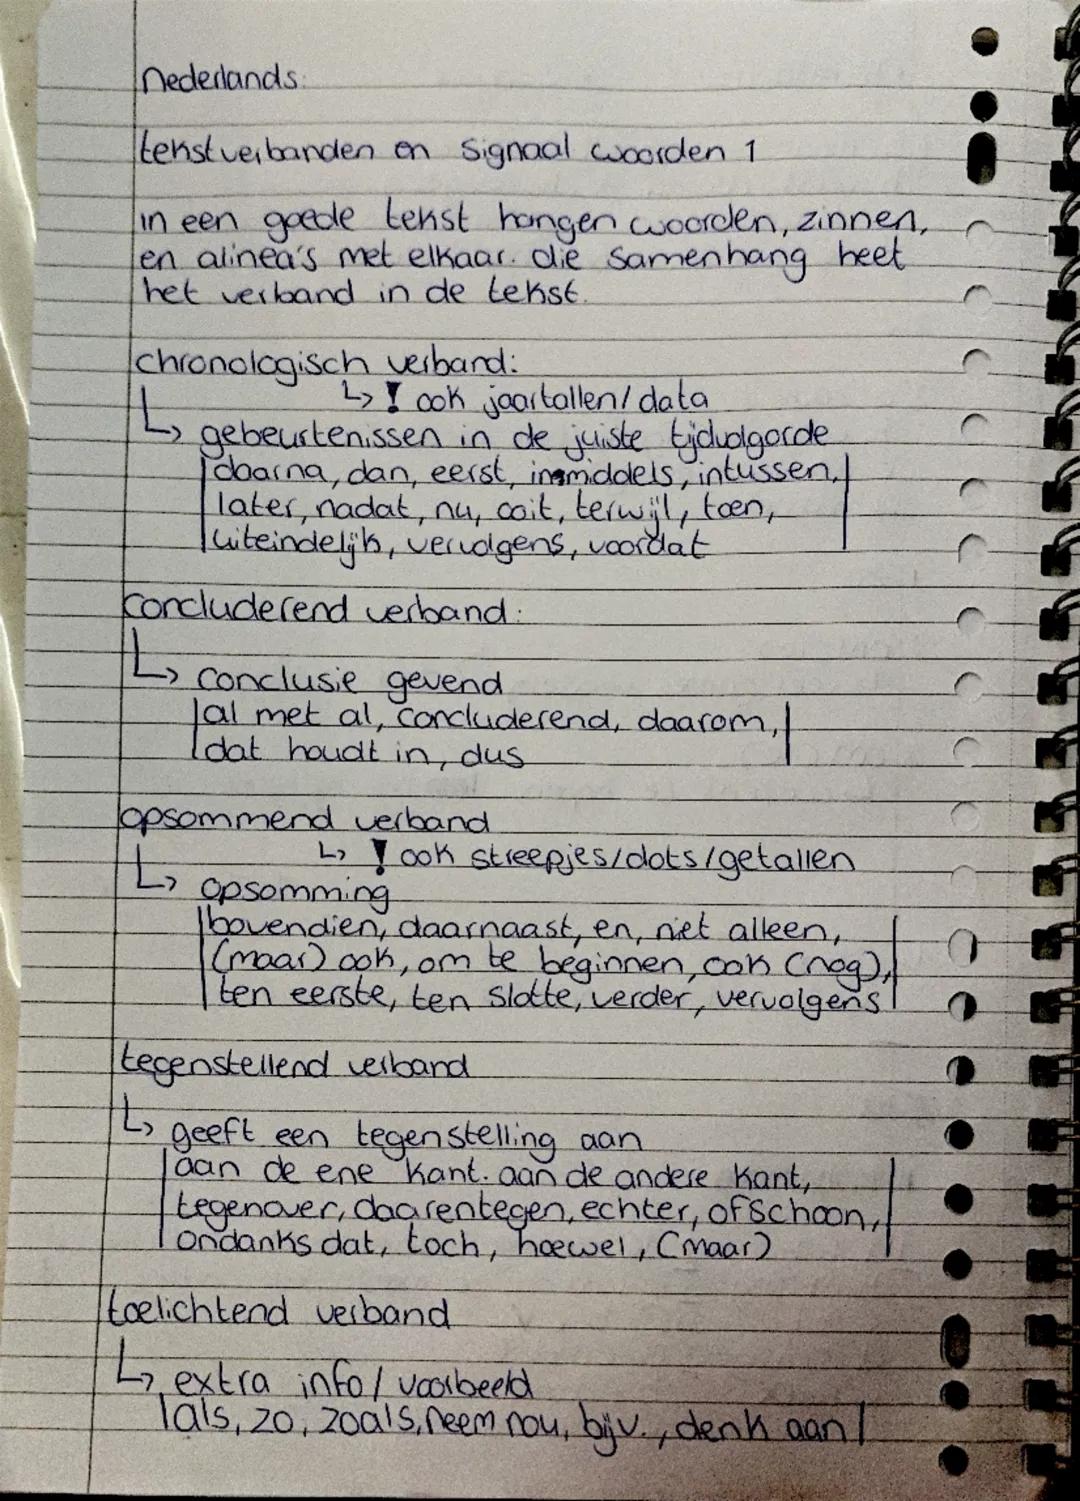 Nederlands:
tekstverbanden en signaal woorden 1
in een goede tekst hangen woorden, zinnen,
en alinea's met elkaar. die samenhang heet
het verband in de tekst.
chronologisch verband:
↳ ! ook jaartallen/data
↳ gebeurtenissen in de juiste tijdvolgorde
daarna, dan, eerst, inmiddels, intussen,
later, nadat, nu, ooit, terwijl, toen,
uiteindelijk, vervolgens, voordat
concluderend verband:
↳ conclusie gevend
al met al, concluderend, daarom,
dat houdt in, dus
opsommend verband
↳ ! ook streepjes/dots/getallen
↳ opsomming
bovendien, daarnaast, en, niet alleen,
(maar) ook, om te beginnen, ook (nog),
ten eerste, ten slotte, verder, vervolgens
tegenstellend verband
↳ geeft een tegenstelling aan
aan de ene kant. aan de andere kant,
tegenover, daarentegen, echter, ofschoon,
ondanks dat, toch, hoewel, (maar)
toelichtend verband
↳ extra info/voorbeeld
als, zo, zoals, neem nou, bijv., denk aan